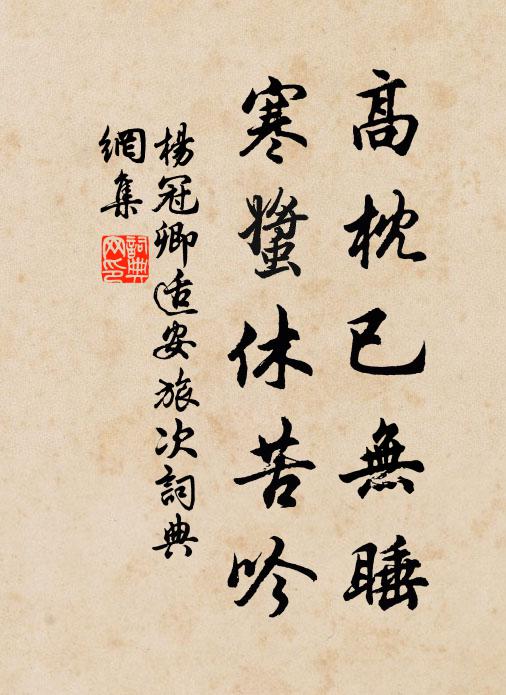 高枕已無睡
寒螿休苦吟
楊冠卿适安旅次詞典
網集
詞典
网印